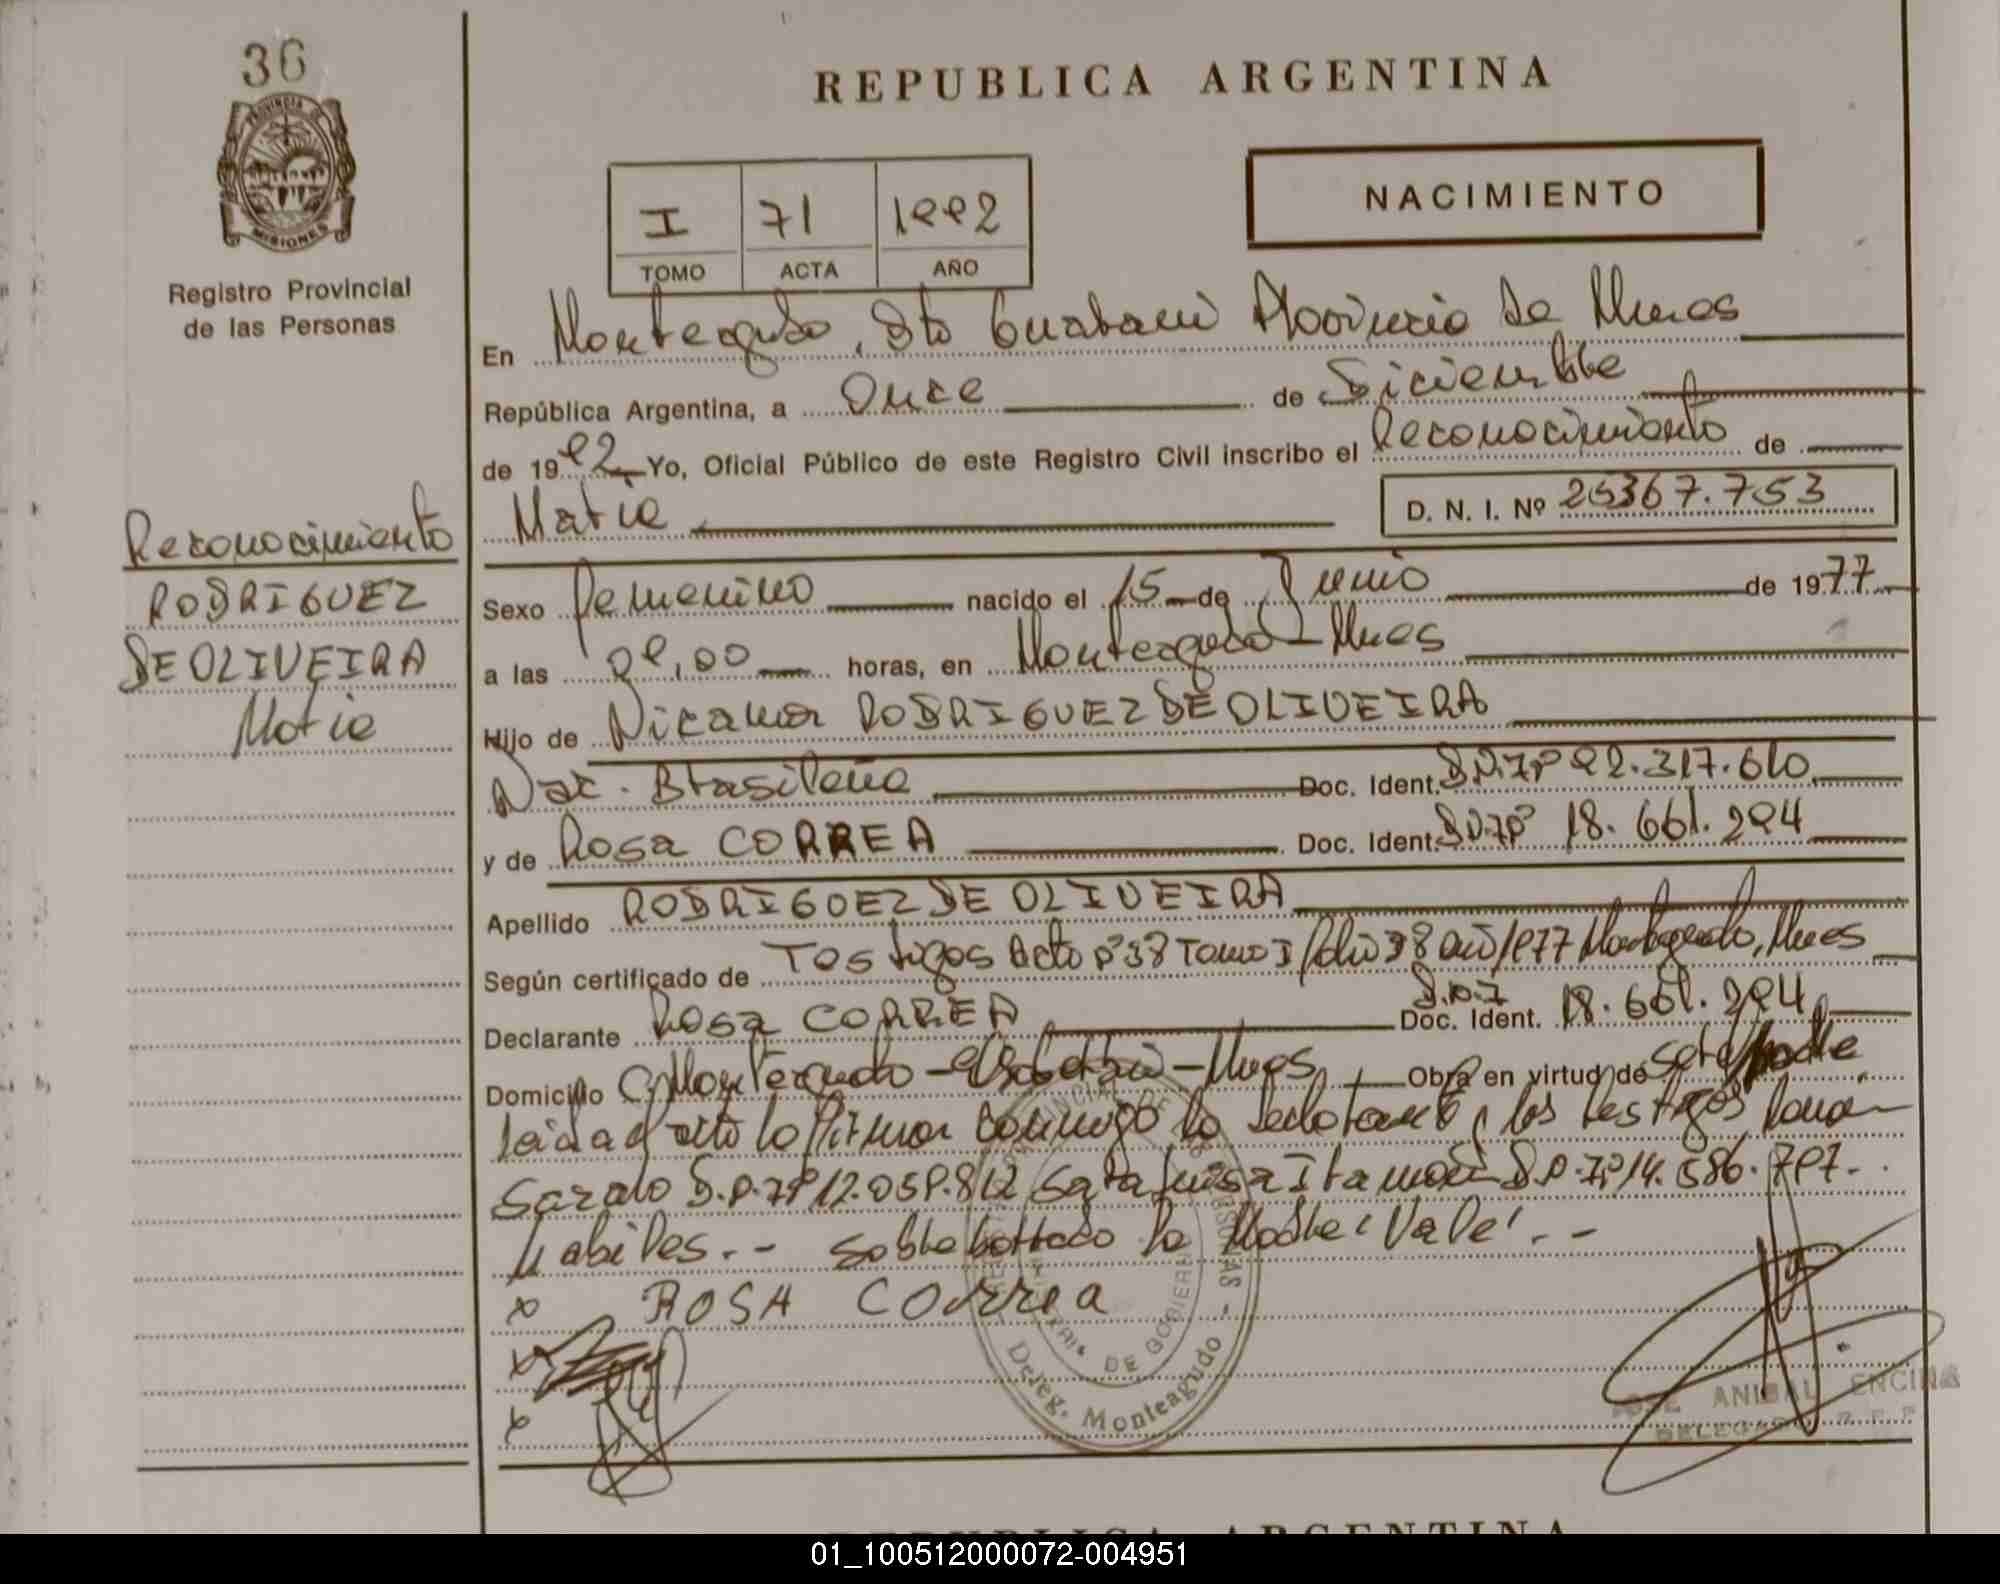 36
PROVINCIA DE
MISIONES
Registro Provincial
de las Personas
Reconocimiento
RODRIGUEZ
DE OLIVEIRA
Maria
REPUBLICA ARGENTINA
I 71 1992
TOMO ACTA AÑO
NACIMIENTO
En Monteagudo, Dto Guarani Provincia de Mnes
República Argentina, a Once de Diciembre
de 1992 Yo, Oficial Público de este Registro Civil inscribo el Reconocimiento de
Maria D. N. I. Nº 25367.753
Sexo Femenino nacido el 15 de Junio de 1977
a las 09,00 horas, en Monteagudo - Mnes
Hijo de Nicanor RODRIGUEZ DE OLIVEIRA
Nac. Brasileña Doc. Ident. D.N.I Nº 92.317.610
y de Rosa CORREA Doc. Ident. D.N.I Nº 18.661.294
Apellido RODRIGUEZ DE OLIVEIRA
Según certificado de Testigos Acta Nº 38 Tomo I folio 38 año 1977 Monteagudo, Mnes
Declarante Rosa CORREA D.N.I Doc. Ident. 18.661.294
Domicilio C. Monteagudo - - Mnes Obra en virtud de ser Madre
Leida el acta la firman conmigo la declarante y los testigos
D.N.I Nº 12.059.812 Sara Luisa D.N.I Nº 14.586.797.
Habiles.- Sobreborrado la Madre "Vale".-
x ROSA COrrea
x
x
DE GOBIERNO
Deleg. Monteagudo
JOSE ANIBAL ENCINA
DELEGADO R.P.P.
REPUBLICA ARGENTINA
01_100512000072-004951